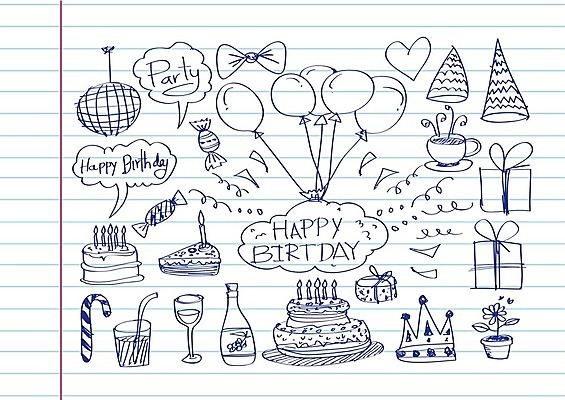 Party
Happy Birthday
HAPPY
BIRTDAY